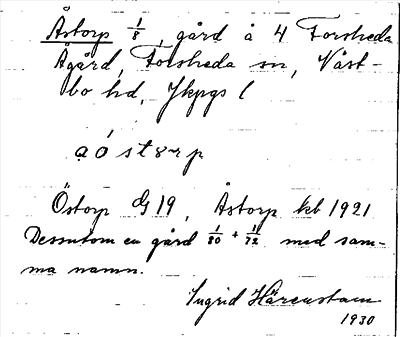 Åstorp 1/8, gård å 4 Forsheda
Ågård, Forsheda sn, Väst-
bo hd, Jkpgs l
Östorp G 19, Åstorp kb 1921
Dessutom en gård 1/80 + 1/72 med sam-
ma namn.
Ingrid Härenstam
1930